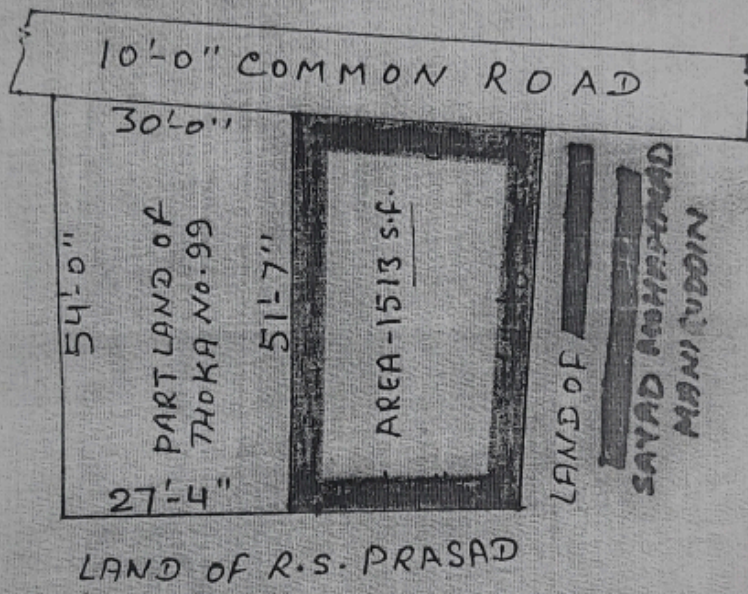 10'-0" COMMON ROAD
30'-0"
54'-0"
PART LAND OF
THOKA No.99
51'-7"
AREA-1513 s.f.
LAND OF
SAYAD MOHAMMAD
MANIRUDDIN
27'-4"
LAND OF R.S. PRASAD